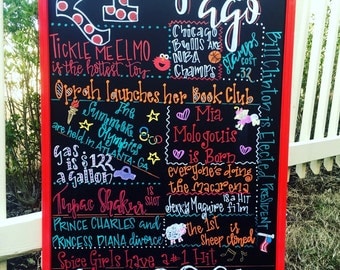 ago
TICKLE ME ELMO
is the hottest toy
CHICAGO
BULLS ARE
NBA
CHAMPS
stamps
COST
32
Bill Clinton is Elected PRESIDENT
Oprah Launches her Book Club
The
Summer
Olympics
are held in ATLANTA GA
Mia
Mologouis
is Born
Gas
is $1.22
a gallon
everyone's doing
the macarena
Tupac Shakur is SHOT
Jerry Maguire is a Hit
Film
PRINCE CHARLES and
PRINCESS DIANA divorce
The 1st
is sheep cloned
Spice Girls have a #1 Hit